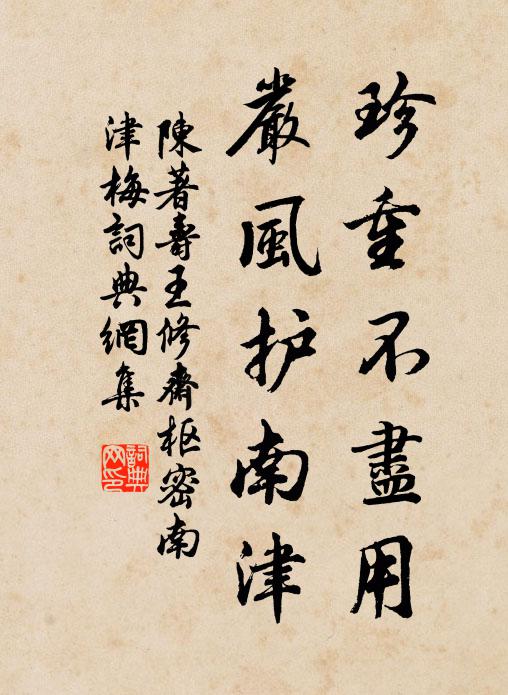 珍重不盡用
嚴風护南津
陳著壽王修齋枢密南
津梅詞典網集
詞典网印